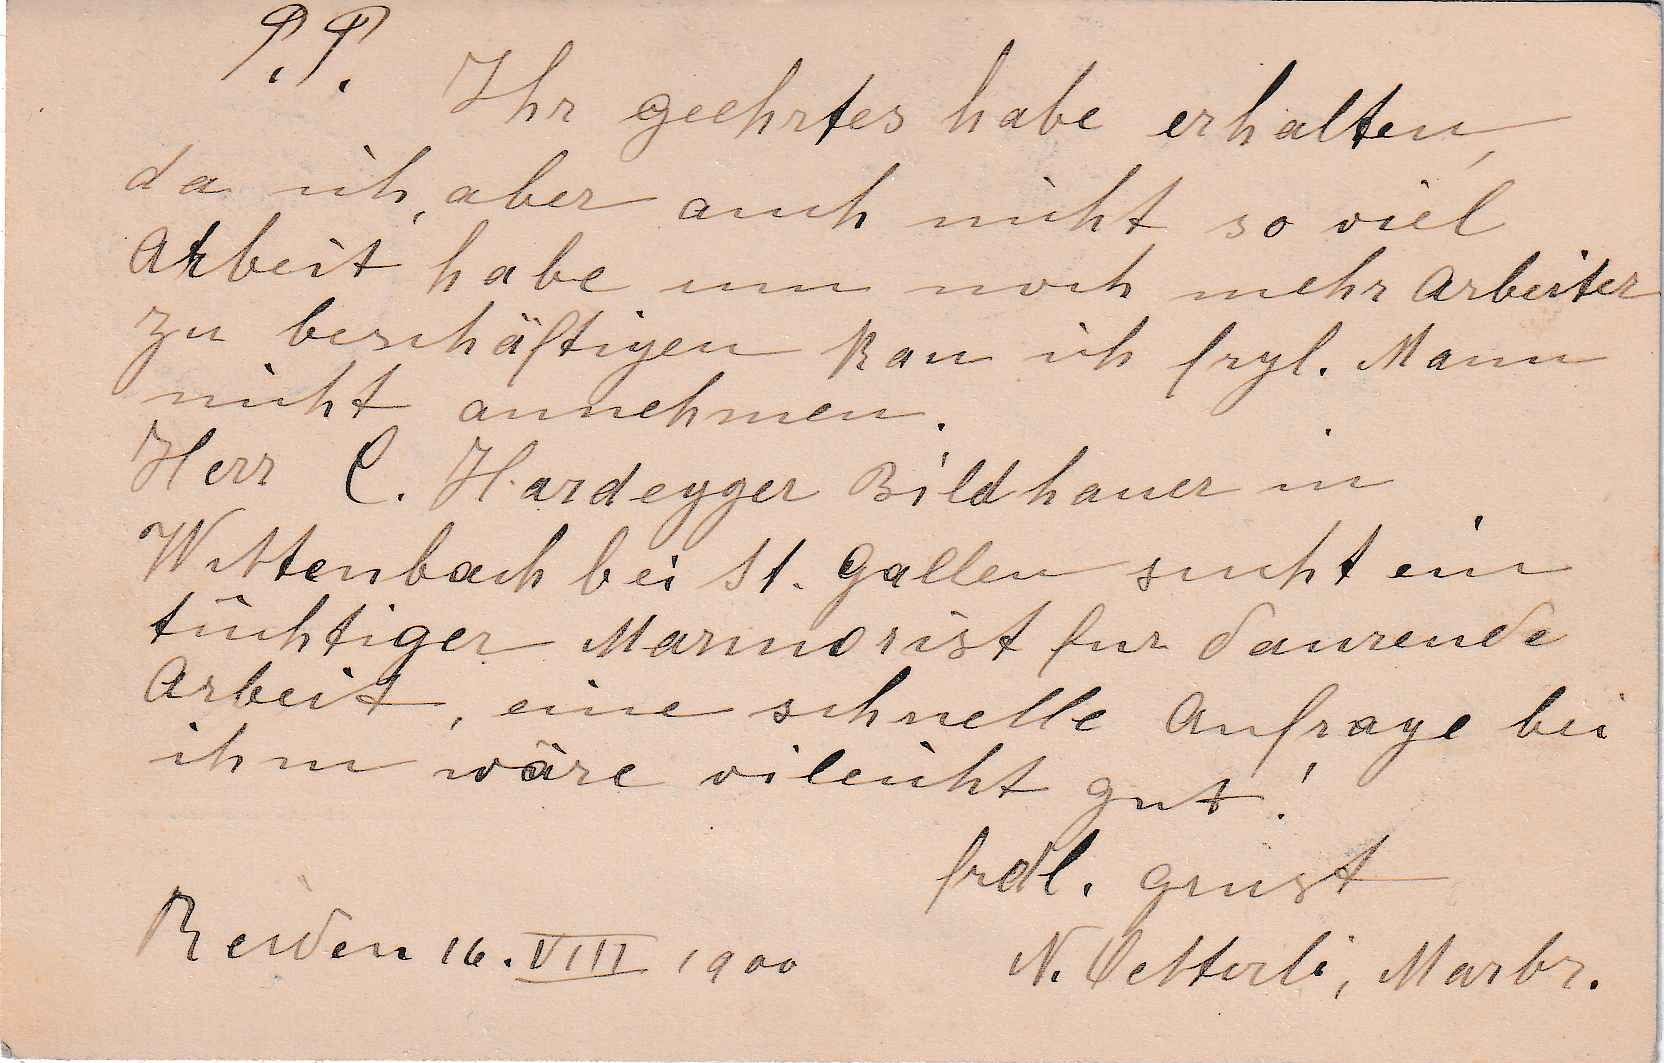 P.P.
Ihr geehrtes habe erhalten,
da ich, aber auch nicht so viel
Arbeit habe um noch mehr Arbeiter
zu beschäftigen kan ich fragl. Mann
nicht annehmen.
Herr C. Hardegger Bildhauer in
Wittenbach bei St. Gallen sucht ein
tüchtiger Marmorist fur daurende
Arbeit, eine schnelle Anfrage bei
ihm wäre vileicht gut!
frdl. grüst
Reiden 16. VIII 1900
N. Oetterli, Marbr.